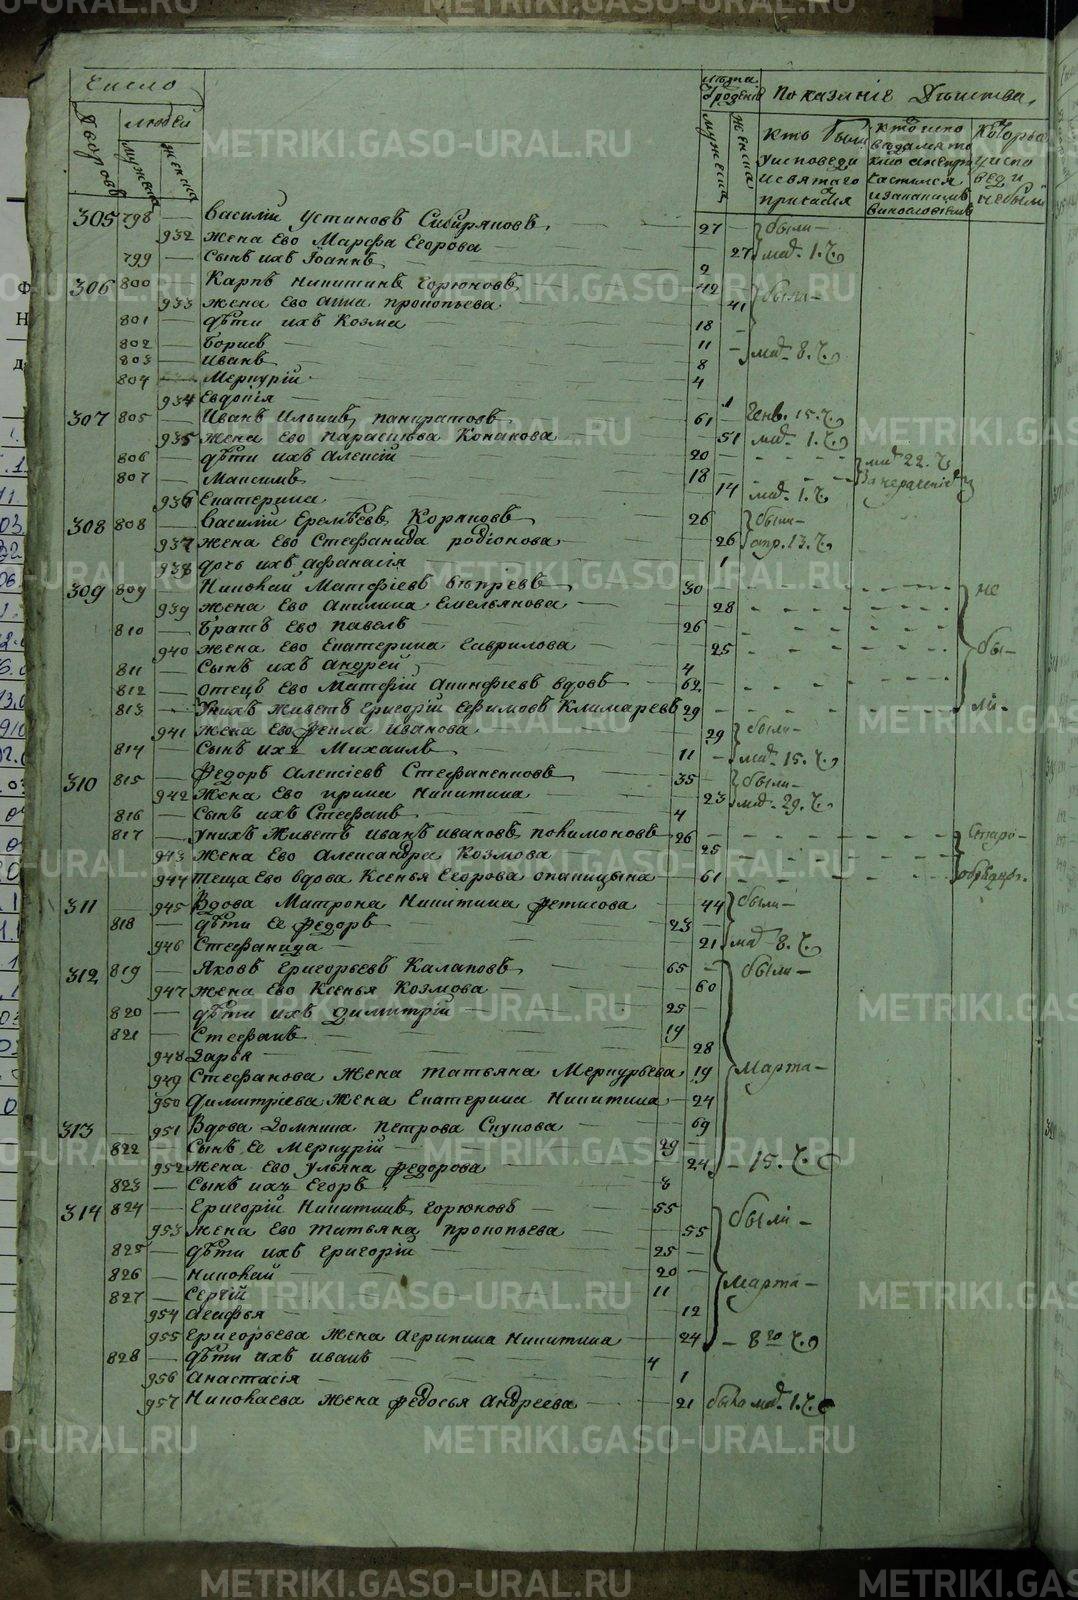 Число
Лѣта Рожденія
Показаніе Дѣйства.
Дворовъ
людей
мужеска
женска
мужеска
женска
кто былъ у исповеди и святаго причастія
305 798 — Василій Устиновъ Сибиряковъ 27 — были —
932 жена Ево Марфа Егорова — 27 мар. 1. ч.
799 — Сынъ ихъ Іоаннъ 2
306 800 — Карпъ Никитинъ Горюновъ 42 были —
933 жена Ево Анна прокопьева 41
801 — дѣти ихъ Козма 18
802 — Борисъ 11
803 — Иванъ 8 мар. 8. ч.
804 — Меркурій 4
934 Евдокія 1
307 805 — Иванъ Ильинъ панкратовъ 61 Генв. 15. ч.
935 жена Ево парасковья Конакова 51 мар. 1. ч.
806 — дѣти ихъ Алексій 20 мар. 22. ч.
807 — Максимъ 18
936 Екатерина 14 мар. 1. ч.
308 808 — Василій Ерелѣевъ Коряковъ 26 были —
937 жена Ево Стефанида родіонова 26 апр. 13. ч.
938 дочь ихъ афанасія 1
309 809 — Николай Матфіевъ вѣтревъ 30 не
939 жена Ево Акилина Емельянова 28
810 — Братъ Ево павелъ 26
940 жена Ево Екатерина Гаврилова 25 бы —
811 — Сынъ ихъ Андрей 4
812 — отецъ Ево Матфій Акинфіевъ вдовъ 62
813 — Унихъ живетъ Григорій Ефимовъ Климаревъ 29 ли —
941 жена Ево фекла иванова 29 были —
814 — Сынъ ихъ Михаилъ 11 мар. 15. ч.
310 815 — Федоръ Алексіевъ Стефаненковъ 35 были —
942 жена Ево ирина Никитина 23 мар. 29. ч.
816 — Сынъ ихъ Стефанъ 4
817 — унихъ Живетъ иванъ ивановъ покимоновъ 26 Старо —
943 жена Ево Александра Козмова 25
944 теща Ево вдова Ксенья Егорова опалицына 61 обрядцы.
311 945 Вдова Матрона Никитина фетисова 44 были —
818 — дѣти Ее федоръ 23
946 Стефанида 21 мар. 8. ч.
312 819 — Яковъ Григорьевъ Калаповъ 65 были —
947 жена Ево Ксенья Козмова 60
820 — дѣти ихъ Димитрій 25
821 — Стефанъ 19
948 Дарья 28
949 Стефанова жена татьяна Меркурьева 19 Марта —
950 Димитріева жена Екатерина Никитина 24
313 951 Вдова Домнина петрова Скукова 69
822 — Сынъ Ее Меркурій 29
952 жена Ево ульяна федорова 24 — 15. ч.
823 — Сынъ ихъ Егоръ 3
314 824 — Григорій Никитинъ Горюновъ 55 были —
953 жена Ево татьяна прокопьева 55
825 — дѣти ихъ Григорій 25
826 — Николай 20 Марта —
827 — Сергій 11
954 Агафья 12
955 Григорьева жена Агрипина Никитина 24 — 8го ч.
828 — дѣти ихъ иванъ 4
956 Анастасія 1
957 Николаева жена федосья Андреева 21 была мар. 1. ч.
METRIKI.GASO-URAL.RU